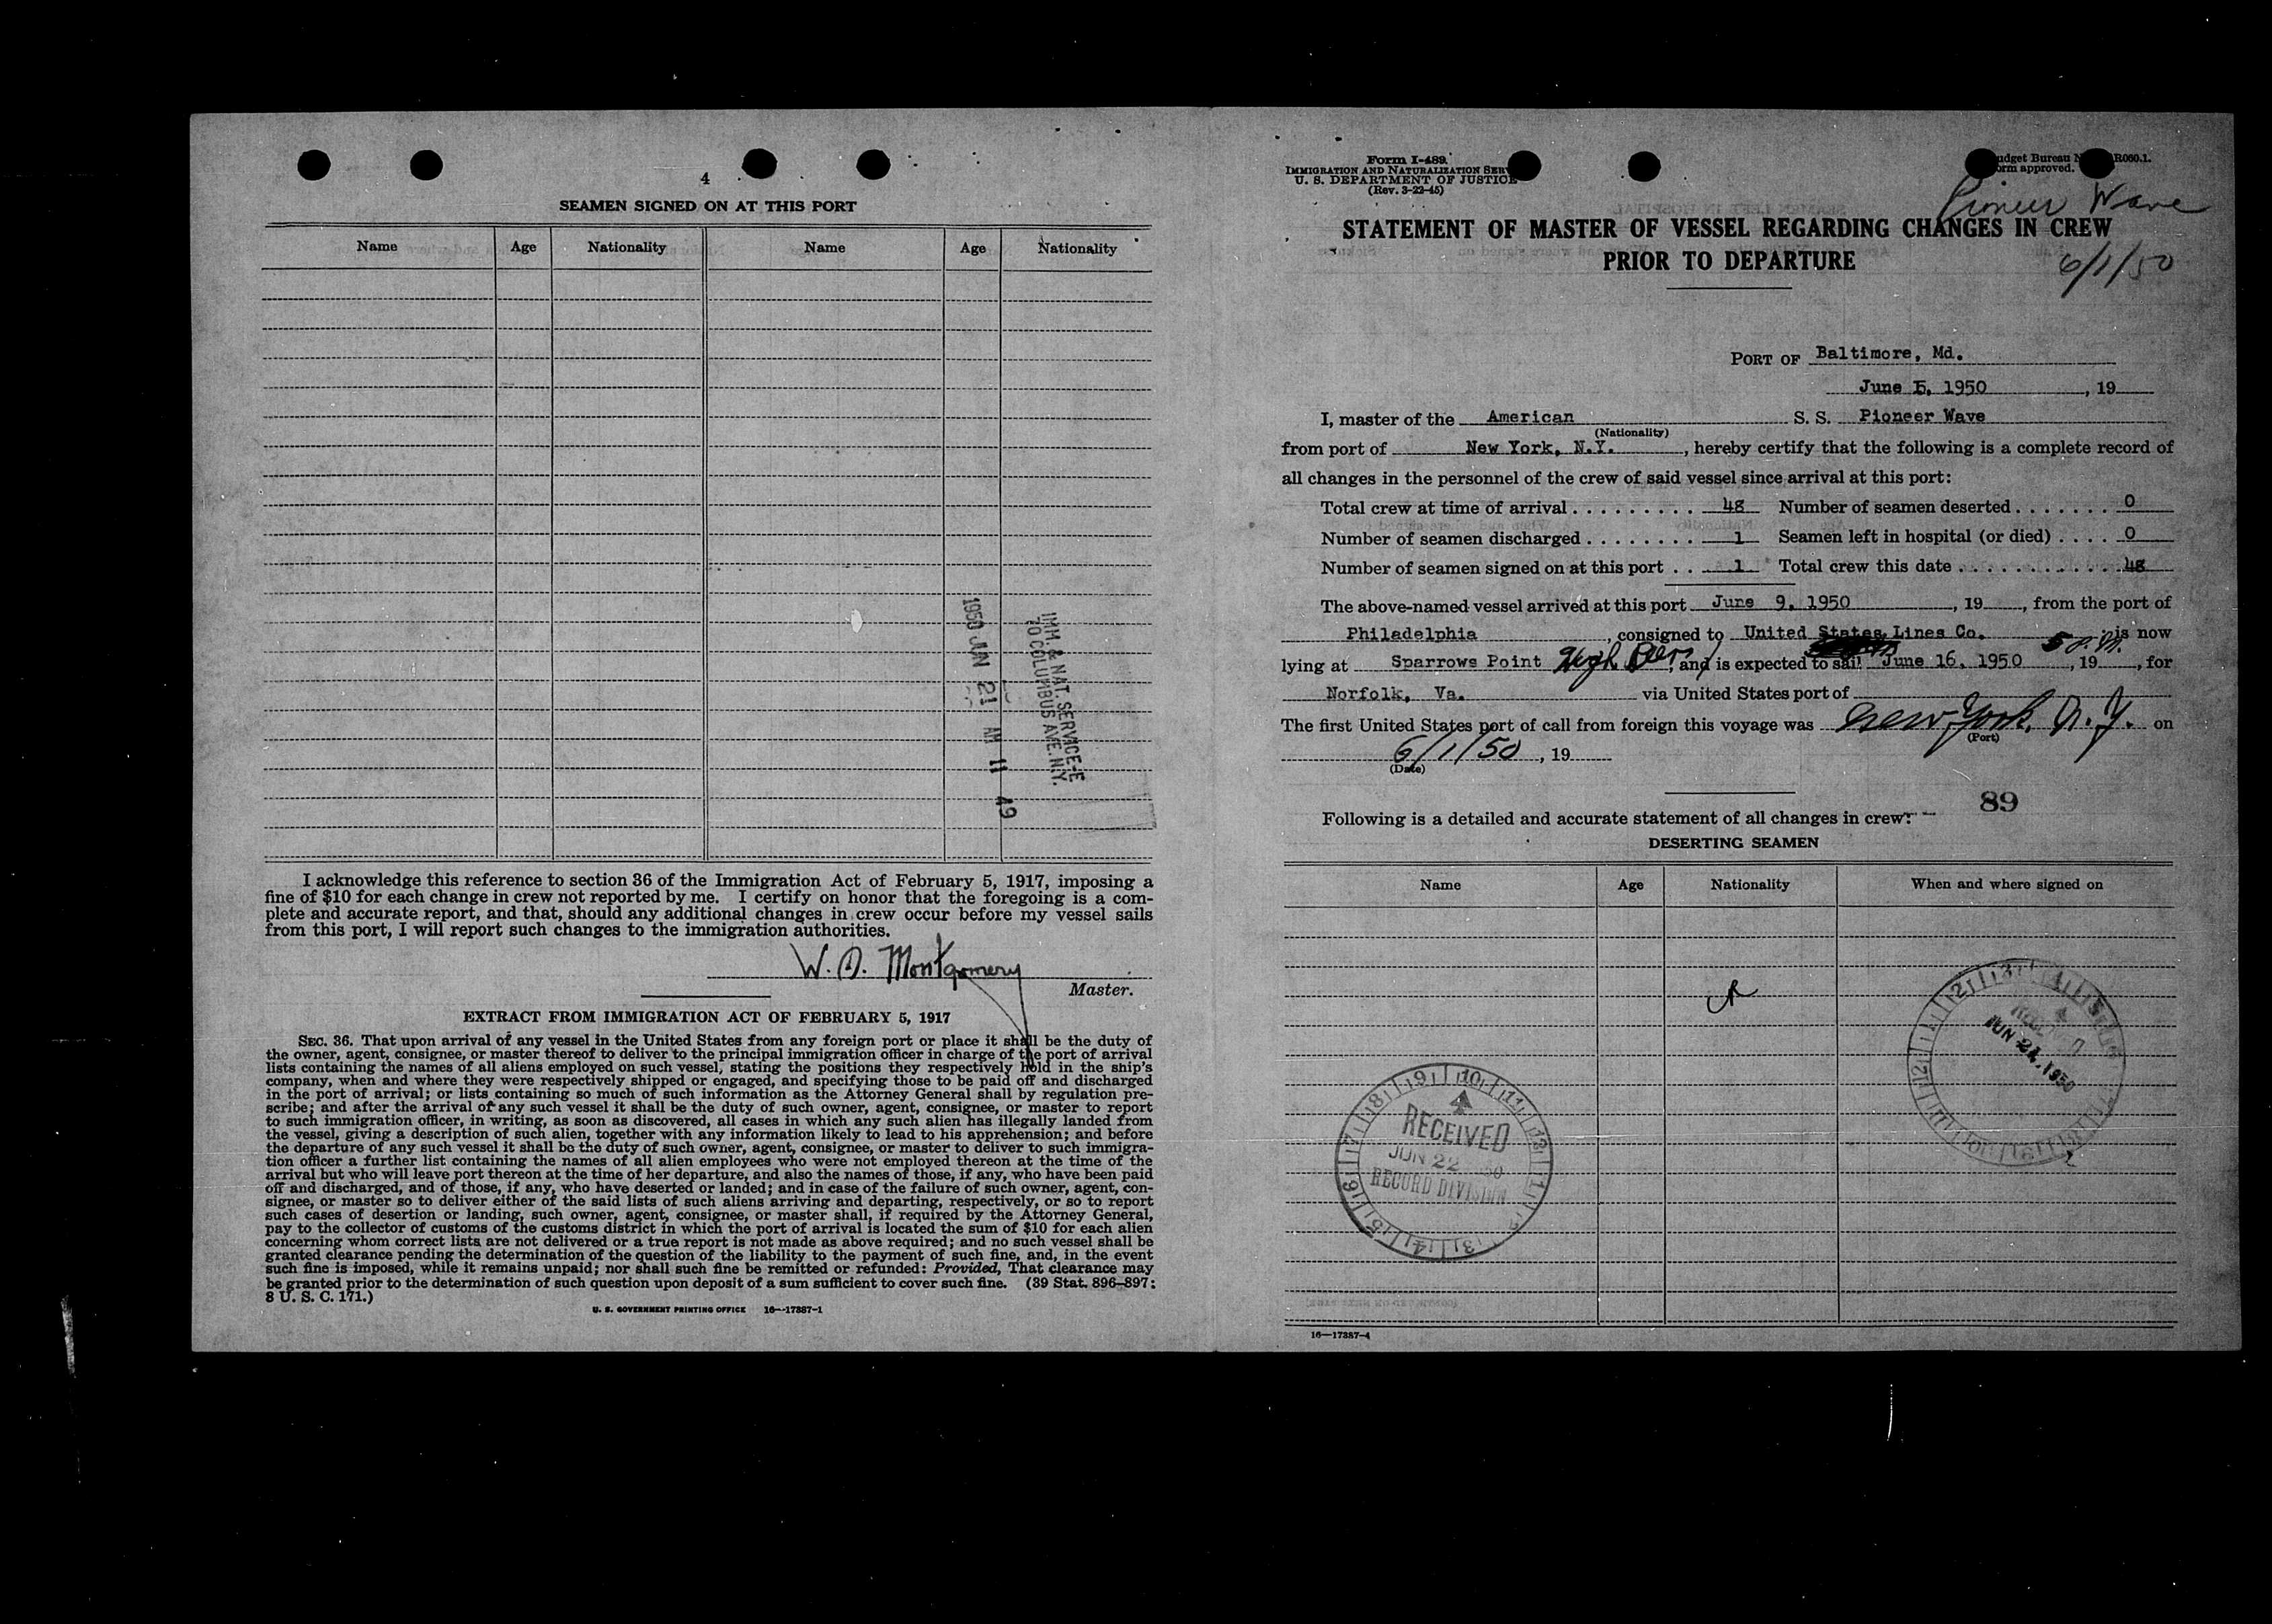 4
SEAMEN SIGNED ON AT THIS PORT
Name Age Nationality Name Age Nationality
1950 JUN 21 AM 11 49
IMM & NAT. SERVICE-E
70 COLUMBUS AVE. N.Y.
I acknowledge this reference to section 36 of the Immigration Act of February 5, 1917, imposing a
fine of $10 for each change in crew not reported by me. I certify on honor that the foregoing is a com-
plete and accurate report, and that, should any additional changes in crew occur before my vessel sails
from this port, I will report such changes to the immigration authorities.
W. D. Montgomery
Master.
EXTRACT FROM IMMIGRATION ACT OF FEBRUARY 5, 1917
SEC. 36. That upon arrival of any vessel in the United States from any foreign port or place it shall be the duty of
the owner, agent, consignee, or master thereof to deliver to the principal immigration officer in charge of the port of arrival
lists containing the names of all aliens employed on such vessel, stating the positions they respectively hold in the ship's
company, when and where they were respectively shipped or engaged, and specifying those to be paid off and discharged
in the port of arrival; or lists containing so much of such information as the Attorney General shall by regulation pre-
scribe; and after the arrival of any such vessel it shall be the duty of such owner, agent, consignee, or master to report
to such immigration officer, in writing, as soon as discovered, all cases in which any such alien has illegally landed from
the vessel, giving a description of such alien, together with any information likely to lead to his apprehension; and before
the departure of any such vessel it shall be the duty of such owner, agent, consignee, or master to deliver to such immigra-
tion officer a further list containing the names of all alien employees who were not employed thereon at the time of the
arrival but who will leave port thereon at the time of her departure, and also the names of those, if any, who have been paid
off and discharged, and of those, if any, who have deserted or landed; and in case of the failure of such owner, agent, con-
signee, or master so to deliver either of the said lists of such aliens arriving and departing, respectively, or so to report
such cases of desertion or landing, such owner, agent, consignee, or master shall, if required by the Attorney General,
pay to the collector of customs of the customs district in which the port of arrival is located the sum of $10 for each alien
concerning whom correct lists are not delivered or a true report is not made as above required; and no such vessel shall be
granted clearance pending the determination of the question of the liability to the payment of such fine, and, in the event
such fine is imposed, while it remains unpaid; nor shall such fine be remitted or refunded: Provided, That clearance may
be granted prior to the determination of such question upon deposit of a sum sufficient to cover such fine. (39 Stat. 896-897;
8 U. S. C. 171.)
U. S. GOVERNMENT PRINTING OFFICE 16—17387-1
Form I-489
IMMIGRATION AND NATURALIZATION SERV
U. S. DEPARTMENT OF JUSTICE
(Rev. 3-22-45)
udget Bureau N R060.1.
orm approved.
Pioneer Wave
STATEMENT OF MASTER OF VESSEL REGARDING CHANGES IN CREW
PRIOR TO DEPARTURE
6/1/50
PORT OF Baltimore, Md.
June 15, 1950, 19
I, master of the American S. S. Pioneer Wave
(Nationality)
from port of New York, N.Y., hereby certify that the following is a complete record of
all changes in the personnel of the crew of said vessel since arrival at this port:
Total crew at time of arrival 48 Number of seamen deserted 0
Number of seamen discharged 1 Seamen left in hospital (or died) 0
Number of seamen signed on at this port 1 Total crew this date 48
The above-named vessel arrived at this port June 9, 1950, 19, from the port of
Philadelphia, consigned to United States Lines Co. is now
lying at Sparrows Point High Pier, and is expected to sail June 16, 1950 5 P.M., 19, for
Norfolk, Va. via United States port of
The first United States port of call from foreign this voyage was New York, N.Y. on
(Port)
6/1/50, 19
(Date)
89
Following is a detailed and accurate statement of all changes in crew:
DESERTING SEAMEN
Name Age Nationality When and where signed on
JUN 21 1950
RECEIVED
JUN 22 50
RECORD DIVISION
16—17387-4